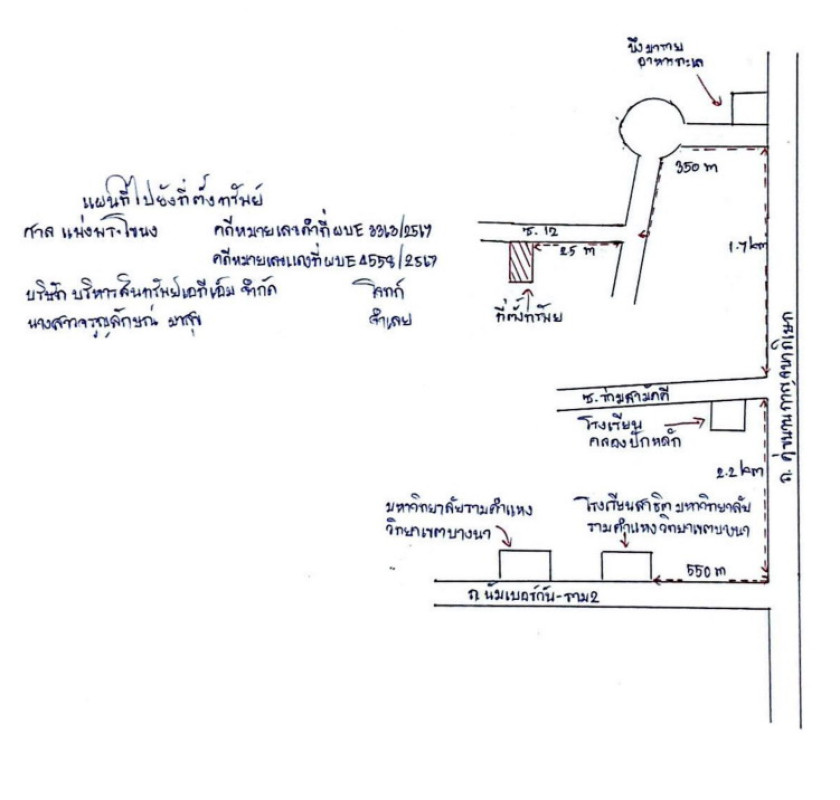 บึงมาราย
อาหารทะเล
350 m
แผนที่ไปยังที่ตั้งทรัพย์
ศาล แพ่งพระโขนง คดีหมายเลขดำที่ ผบE 3363/2567
คดีหมายเลขแดงที่ ผบE 4558/2567
บริษัท บริหารสินทรัพย์เอทีเอ็ม จำกัด โจทก์
นางสาวจรูญลักษณ์ มาสุข จำเลย
ซ. 12
25 m
1.7 km
ที่ตั้งทรัพย์
ถ. คู่ขนานกาญจนาภิเษก
ซ. ร่วมสามัคคี
โรงเรียน
คลองปักหลัก
2.2 km
มหาวิทยาลัยรามคำแหง
วิทยาเขตบางนา
โรงเรียนสาธิต มหาวิทยาลัย
รามคำแหง วิทยาเขตบางนา
550 m
ถ นัมเบอร์กัน-ราม2